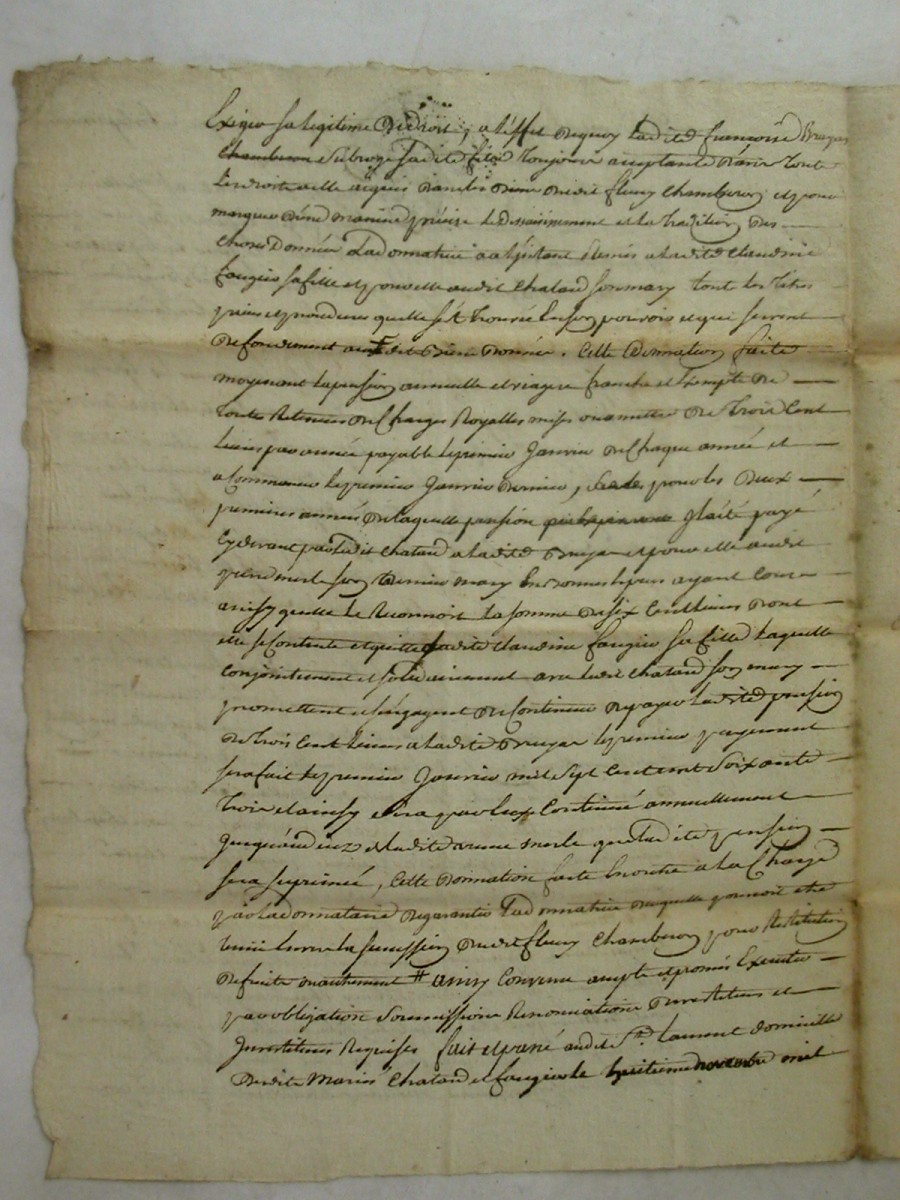 Exiger sa legitime de droit, a l'effet dequoy ladite francoise Bruyas
Chamberon subroge sadite fille toujours acceptante dans tous
les droits a elle acquis dans les biens dudit fleury Chamberon, et pour
marquer d'une maniere precise le dessaisissement et la tradition des
choses données ladonnatrice a alinstant remis a ladite Claudine
faugier sa fille et pour elle audit Chatard son mary tout les titres
pieces et procedures quelle s'est trouvée en son pouvoir et qui servent
de fondement auxdits biens donnés. Cette donnation faite
moyenant la pension annuelle et viagere franche et exempte de
toutes retenues de charges Royalles mises ou a mettre de trois cent
livres par année payable le premier Janvier de chaque année et
a commencer le premier Janvier dernier, pour les deux
premieres années de laquelle pension il a été payé
cydevant par ledit Chatard a ladite Bruyas et pour elle audit
son dernier mary en bonnes especes ayant cours
ainsy quelle le reconnoit la somme de six cent livres dont
elle se contente et quitte ladite Claudine faugier sa fille laquelle
conjointement et solidairement avec ledit Chatard son mary
promettent et s'engagent de continuer de payer ladite pension
de trois cent livres a ladite Bruyas le premier payement
sera fait le premier Janvier mil sept cent soixante
trois et ainsy sera par eux continué annuellement
jusqu'au deces de ladite que ladite pension
sera suprimée, cette donnation faite enoutre a la charge
par la donnataire de garantir ladonnatrice de ce quelle pourroit etre
tenue envers la succession dudit fleury Chamberon pour restitution
de fruits ou autrement # ainsy convenu accepté et promis executer
par obligation soumissions Renonciations et
Requises fait et passé audit St. laurent domicille
desdits mariés Chatard et faugier le huitieme novembre mil